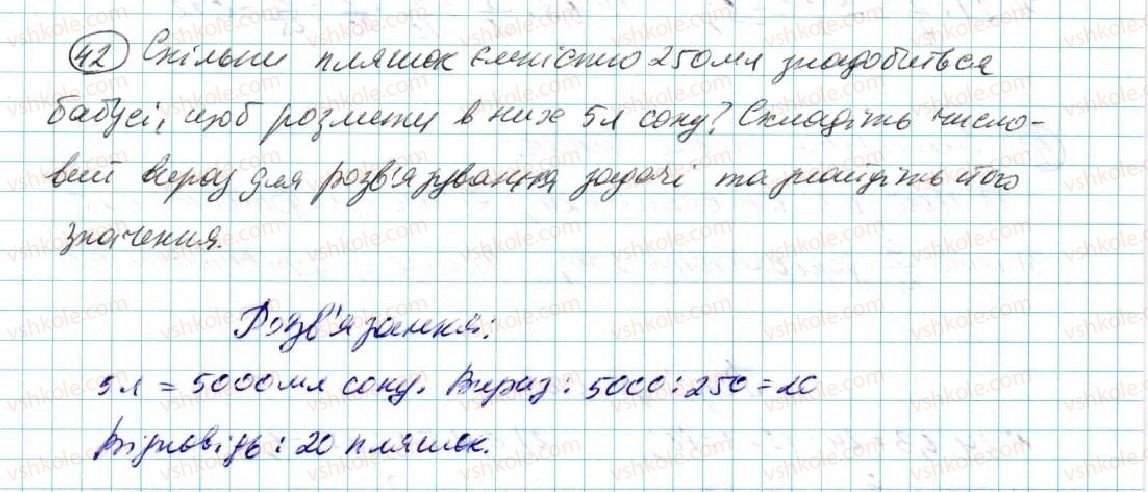 42 Скільки пляшок ємністю 250мл знадобиться
бабусі, щоб розлити в них 5л соку? Складіть число-
вий вираз для розв'язування задачі та знайдіть його
значення.
Розв'язання:
5л = 5000мл соку. Вираз: 5000:250=20
Відповідь: 20 пляшок.